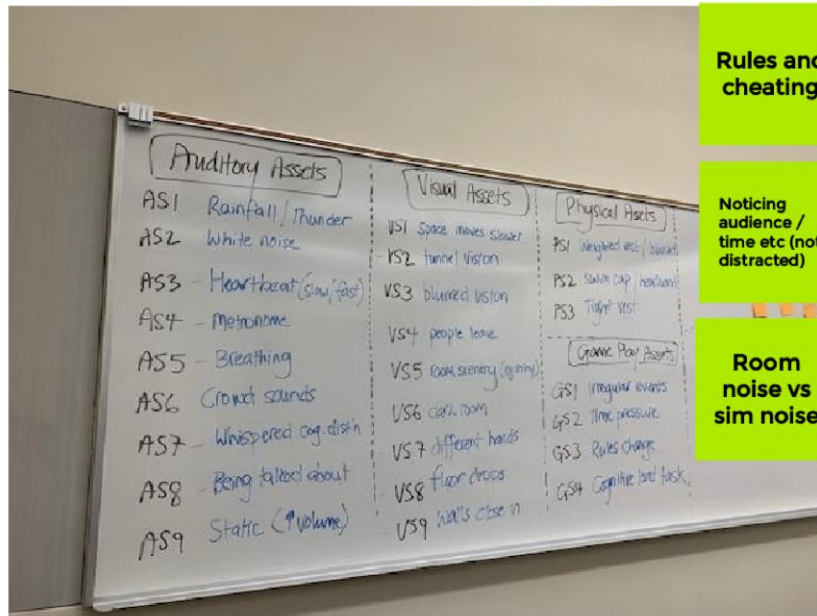 Auditory Assets
AS1 Rainfall / Thunder
AS2 White noise
AS3 - Heartbeat (slow/fast)
AS4 - Metronome
AS5 - Breathing
AS6 Crowd sounds
AS7 - Whispered cog. dist'n
AS8 - Being talked about
AS9 Static (↑volume)
Visual Assets
VS1 space moves slower
VS2 tunnel vision
VS3 blurred vision
VS4 people leave
VS5 room scenery
VS6 dark room
VS7 different hands
VS8 floor drops
VS9 walls close in
Physical Assets
PS1 Weighted vest /
PS2 swim cap / headband
PS3 Tight vest
Game Play Assets
GS1 Irregular events
GS2 Time pressure
GS3 Rules change
GS4 Cognitive load task
Rules and
cheating
Noticing
audience /
time etc (not
distracted)
Room
noise vs
sim noise